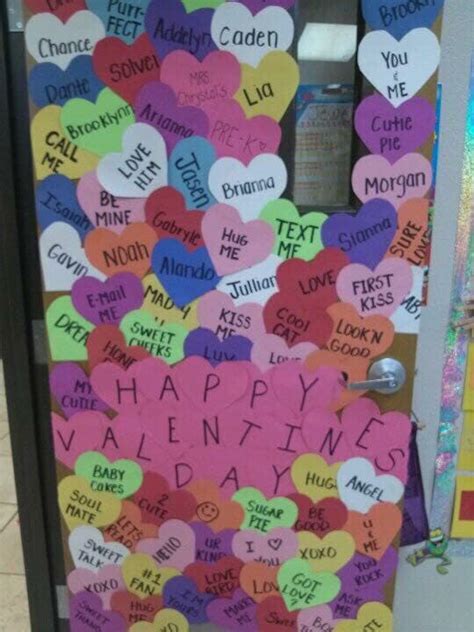 PURR-FECT
Brookly
Chance
Addelyn
Caden
YOU & ME
SolveI
Dante
MRS. Chrystal's
Lia
PRE-K
Brooklynn
Arianna
CUTIE PIE
CALL ME
LOVE HIM
Jasen
Brianna
MORGAN
Isaiah
BE MINE
Gabryle
HUG ME
TEXT ME
Sianna
SURE LOVE
Gavin
NOAH
Alando
Jullian
LOVE
FIRST KISS
E-MAIL ME
MAD 4
KISS ME
COOL CAT
LOOK'N GOOD
SWEET CHEEKS
LUV
MY CUTIE
HAPPY
VALENTINES
DAY
BABY Cakes
2 CUTE
HUG
ANGEL
SOUL MATE
LETS READ
SUGAR PIE
BE GOOD
U & ME
SWEET TALK
HELLO
UR KIND
I
XOXO
YOU ROCK
XOXO
#1 FAN
LOVE BIRD
GOT LOVE?
HUG ME
I'M YOURS
ASK ME
SWEET